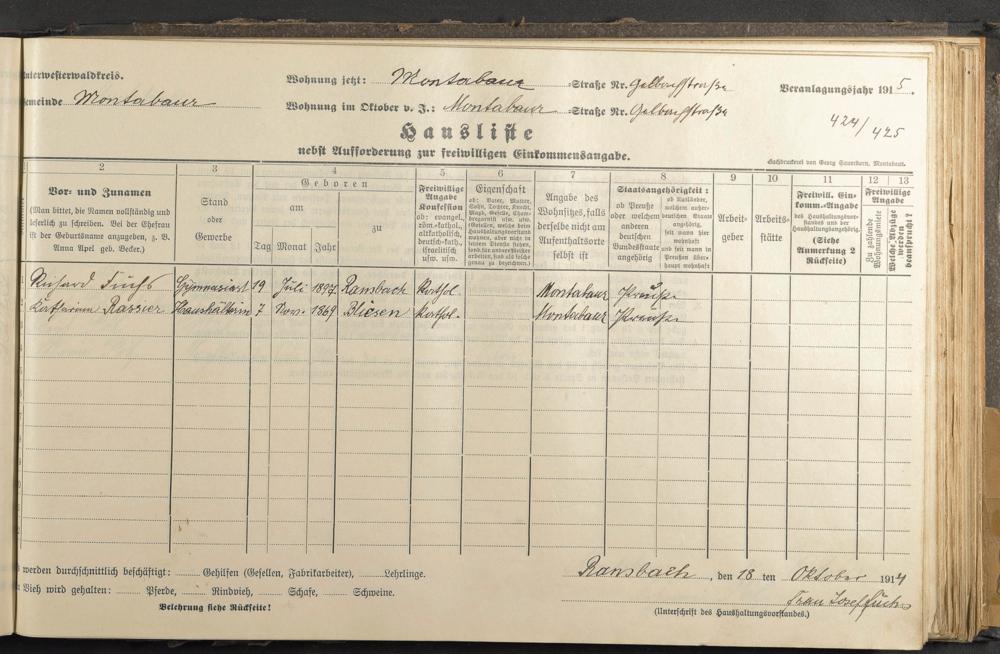 Unterwesterwaldkreis.
Gemeinde Montabaur
Wohnung jetzt: Montabaur -Straße Nr. Gelbachstraße
Wohnung im Oktober v. J.: Montabaur -Straße Nr. Gelbachstraße
Veranlagungsjahr 1915.
424/425
Hausliste
nebst Aufforderung zur freiwilligen Einkommensangabe.
Buchdruckerei von Georg Sauerborn, Montabaur.
2 3 4 5 6 7 8 9 10 11 12 13
Vor- und Zunamen
(Man bittet, die Namen vollständig und
leserlich zu schreiben. Bei der Ehefrau
ist der Geburtsname anzugeben, z. B.
Anna Apel geb. Becker.)
Stand
oder
Gewerbe
Geboren
am
zu
Tag Monat Jahr
Freiwillige
Angabe
Konfession
ob: evangel.,
röm.-kathol.,
altkatholisch,
deutsch-kath.,
israelitisch
usw. usw.
Eigenschaft
ob: Vater, Mutter,
Sohn, Tochter, Knecht,
Magd, Geselle, Cham-
bregarnist usw. usw.
(Gesellen, welche beim
Haushaltungsvorstand
wohnen, aber nicht in
seinem Dienste stehen,
sind als solche
genau zu bezeichnen.)
Angabe des
Wohnsitzes, falls
derselbe nicht am
Aufenthaltsorte
selbst ist
Staatsangehörigkeit:
ob Preuße
oder welchem
anderen
deutschen
Bundesstaate
angehörig
ob Ausländer,
welchem außer-
deutschen Staate
angehörig,
seit wann hier
wohnhaft
und seit wann in
Preußen über-
haupt wohnhaft
Arbeit-
geber
Arbeits-
stätte
Freiwill. Ein-
komm.-Angabe
des Haushaltungsvor-
standes und der
Haushaltungsangehörig.
(Siehe
Anmerkung 2
Rückseite)
Freiwillige
Angabe
Zu zahlende
Wohnungsmiete
Welche Abzüge
werden
beansprucht?
Richard Fuchs Gymnasiast 19 Juli 1897 Ransbach Kathol. Montabaur Preuße
Katharina Rassier Haushälterin 7 Nov. 1869 Bliesen Kathol. Montabaur Preuße
werden durchschnittlich beschäftigt: Gehilfen (Gesellen, Fabrikarbeiter), Lehrlinge.
Vieh wird gehalten: Pferde, Rindvieh, Schafe, Schweine.
Belehrung siehe Rückseite!
Ransbach, den 18 ten Oktober 1914
Frau Josef Fuchs
(Unterschrift des Haushaltungsvorstandes.)